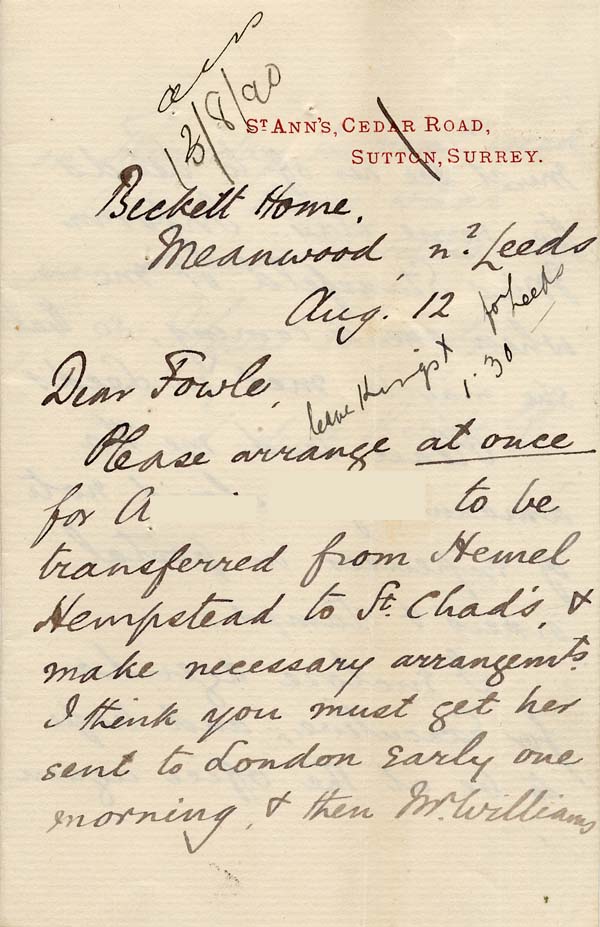 13/8/90
St ANN'S, CEDAR ROAD,
SUTTON, SURREY.
Beckett Home,
Meanwood, nr. Leeds
Aug. 12
leave Kings X for Leeds
1.30
Dear Fowle,
Please arrange at once
for A to be
transferred from Hemel
Hempstead to St. Chad's, &
make necessary arrangemts.
I think you must get her
sent to London early one
morning, & then Mr. Williams